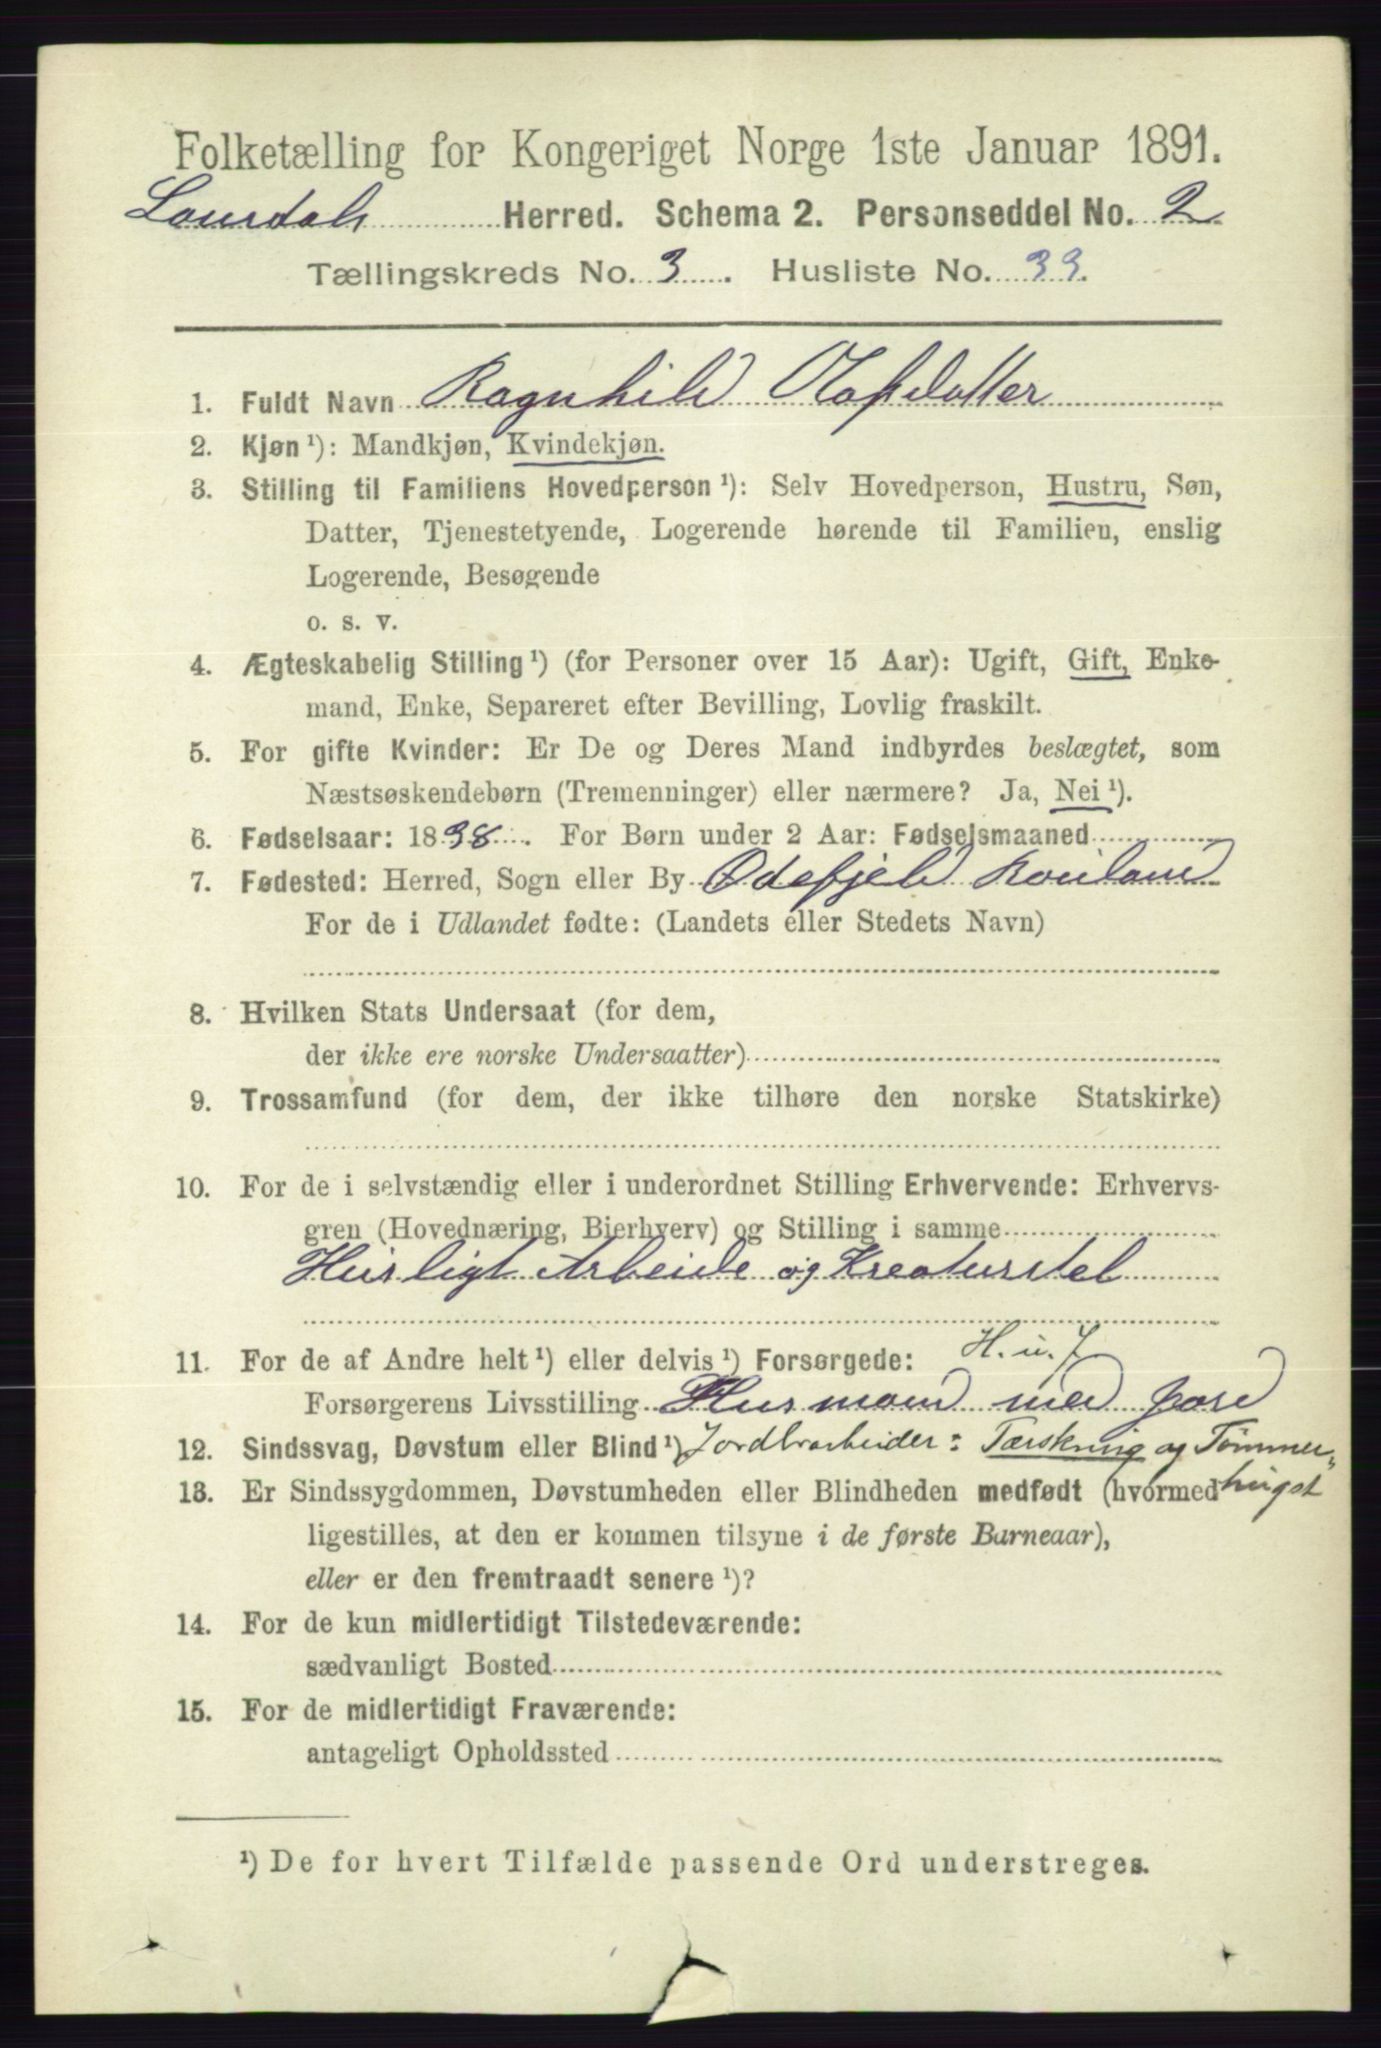 Folketælling for Kongeriget Norge 1ste Januar 1891.
Laurdals Herred. Schema 2. Personseddel No. 2
Tællingskreds No. 3. Husliste No. 33.
1. Fuldt Navn Ragnhild Olafsdatter
2. Kjøn ¹): Mandkjøn, Kvindekjøn.
3. Stilling til Familiens Hovedperson ¹): Selv Hovedperson, Hustru, Søn,
Datter, Tjenestetyende, Logerende hørende til Familien, enslig
Logerende, Besøgende
o. s. v.
4. Ægteskabelig Stilling ¹) (for Personer over 15 Aar): Ugift, Gift, Enke-
mand, Enke, Separeret efter Bevilling, Lovlig fraskilt.
5. For gifte Kvinder: Er De og Deres Mand indbyrdes beslægtet, som
Næstsøskendebørn (Tremenninger) eller nærmere? Ja, Nei ¹).
6. Fødselsaar: 1838. For Børn under 2 Aar: Fødselsmaaned
7. Fødested: Herred, Sogn eller By Ødefjeld Rauland
For de i Udlandet fødte: (Landets eller Stedets Navn)
8. Hvilken Stats Undersaat (for dem,
der ikke ere norske Undersaatter)
9. Trossamfund (for dem, der ikke tilhøre den norske Statskirke)
10. For de i selvstændig eller i underordnet Stilling Erhvervende: Erhvervs-
gren (Hovednæring, Bierhverv) og Stilling i samme
Husligt Arbeide og Kreaturstel
11. For de af Andre helt ¹) eller delvis ¹) Forsørgede: H. u. J
Forsørgerens Livsstilling Husmand med Jord
12. Sindssvag, Døvstum eller Blind ¹) Jordbrarbeider: Tærskning og Tømmer-
13. Er Sindssygdommen, Døvstumheden eller Blindheden medfødt (hvormed hugst
ligestilles, at den er kommen tilsyne i de første Barneaar),
eller er den fremtraadt senere ¹)?
14. For de kun midlertidigt Tilstedeværende:
sædvanligt Bosted
15. For de midlertidigt Fraværende:
antageligt Opholdssted
¹) De for hvert Tilfælde passende Ord understreges.